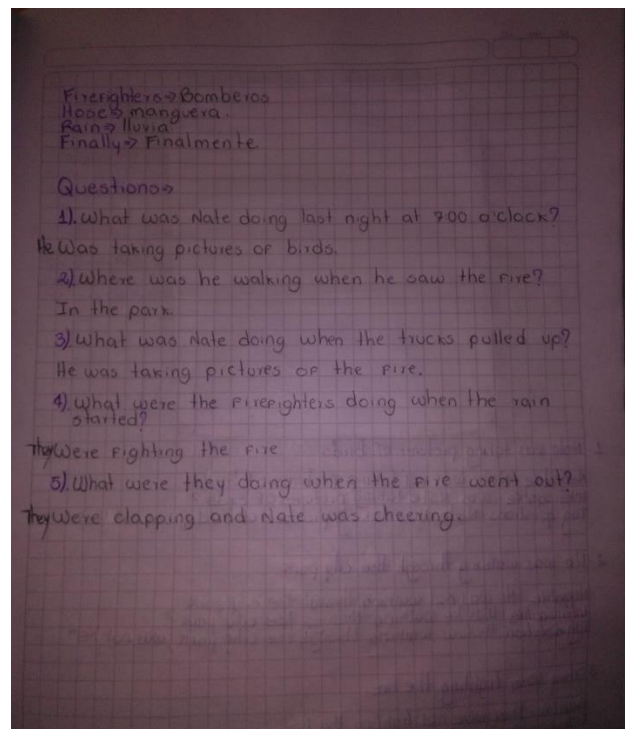 Firefighters⇒Bomberos
Hose⇒manguera.
Rain⇒lluvia
Finally⇒Finalmente.
Questions⇒
1). What was Nate doing last night at 7:00 o'clock?
He was taking pictures of birds.
2). Where was he walking when he saw the fire?
In the park.
3). What was Nate doing when the trucks pulled up?
He was taking pictures of the fire.
4). What were the firefighters doing when the rain
started?
They were fighting the fire
5). What were they doing when the fire went out?
They were clapping and Nate was cheering.